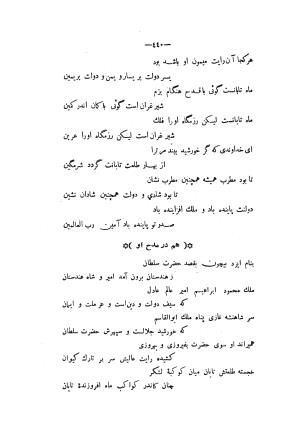 —٤٤٠—
هرکجا آن رایت میمون او باشد بود
یسر دولت بر یسار و یمن و دولت بر یمین
ماه تابانست گوئی باقدح هنگام بزم
شیر غران است گوئی باکان اندر کین
ماه تابانست لیکن رزمگاه اورا فلک
شیر غران است لیکن رزمگاه اورا عرین
ای خداوندی که گر خورشید بیند مر ترا
از بهار طلعت تابانت گردد شرمگین
تا بود مطرب همیشه همچنین مطرب نشان
تا بود شادی و دولت همچنین شادان نشین
دولتت پاینده باد و ملک افزاینده باد
صدر تو پاینده باد آمین رب العالمین
*( هم در مدح او )*
بنام ایزد بیچون بقصد حضرت سلطان
ز هندستان برون آمد امیر و شاه هندستان
ملک محمود ابراهیم امیر عالم عادل
که سیف دولت و دین است و عز ملت و ایمان
سر شاهنشه غازی پناه ملک ابوالقاسم
که خورشید جلالست و سپهرش حضرت سلطان
همیراند او سوی حضرت بفیروزی و بهروزی
کشیده رایت عالیش سر بر تارک کیوان
خجسته طلعتش تابان میان کوکبهٔ لشکر
چنان کاندر کواکب ماه افروزندهٔ تابان